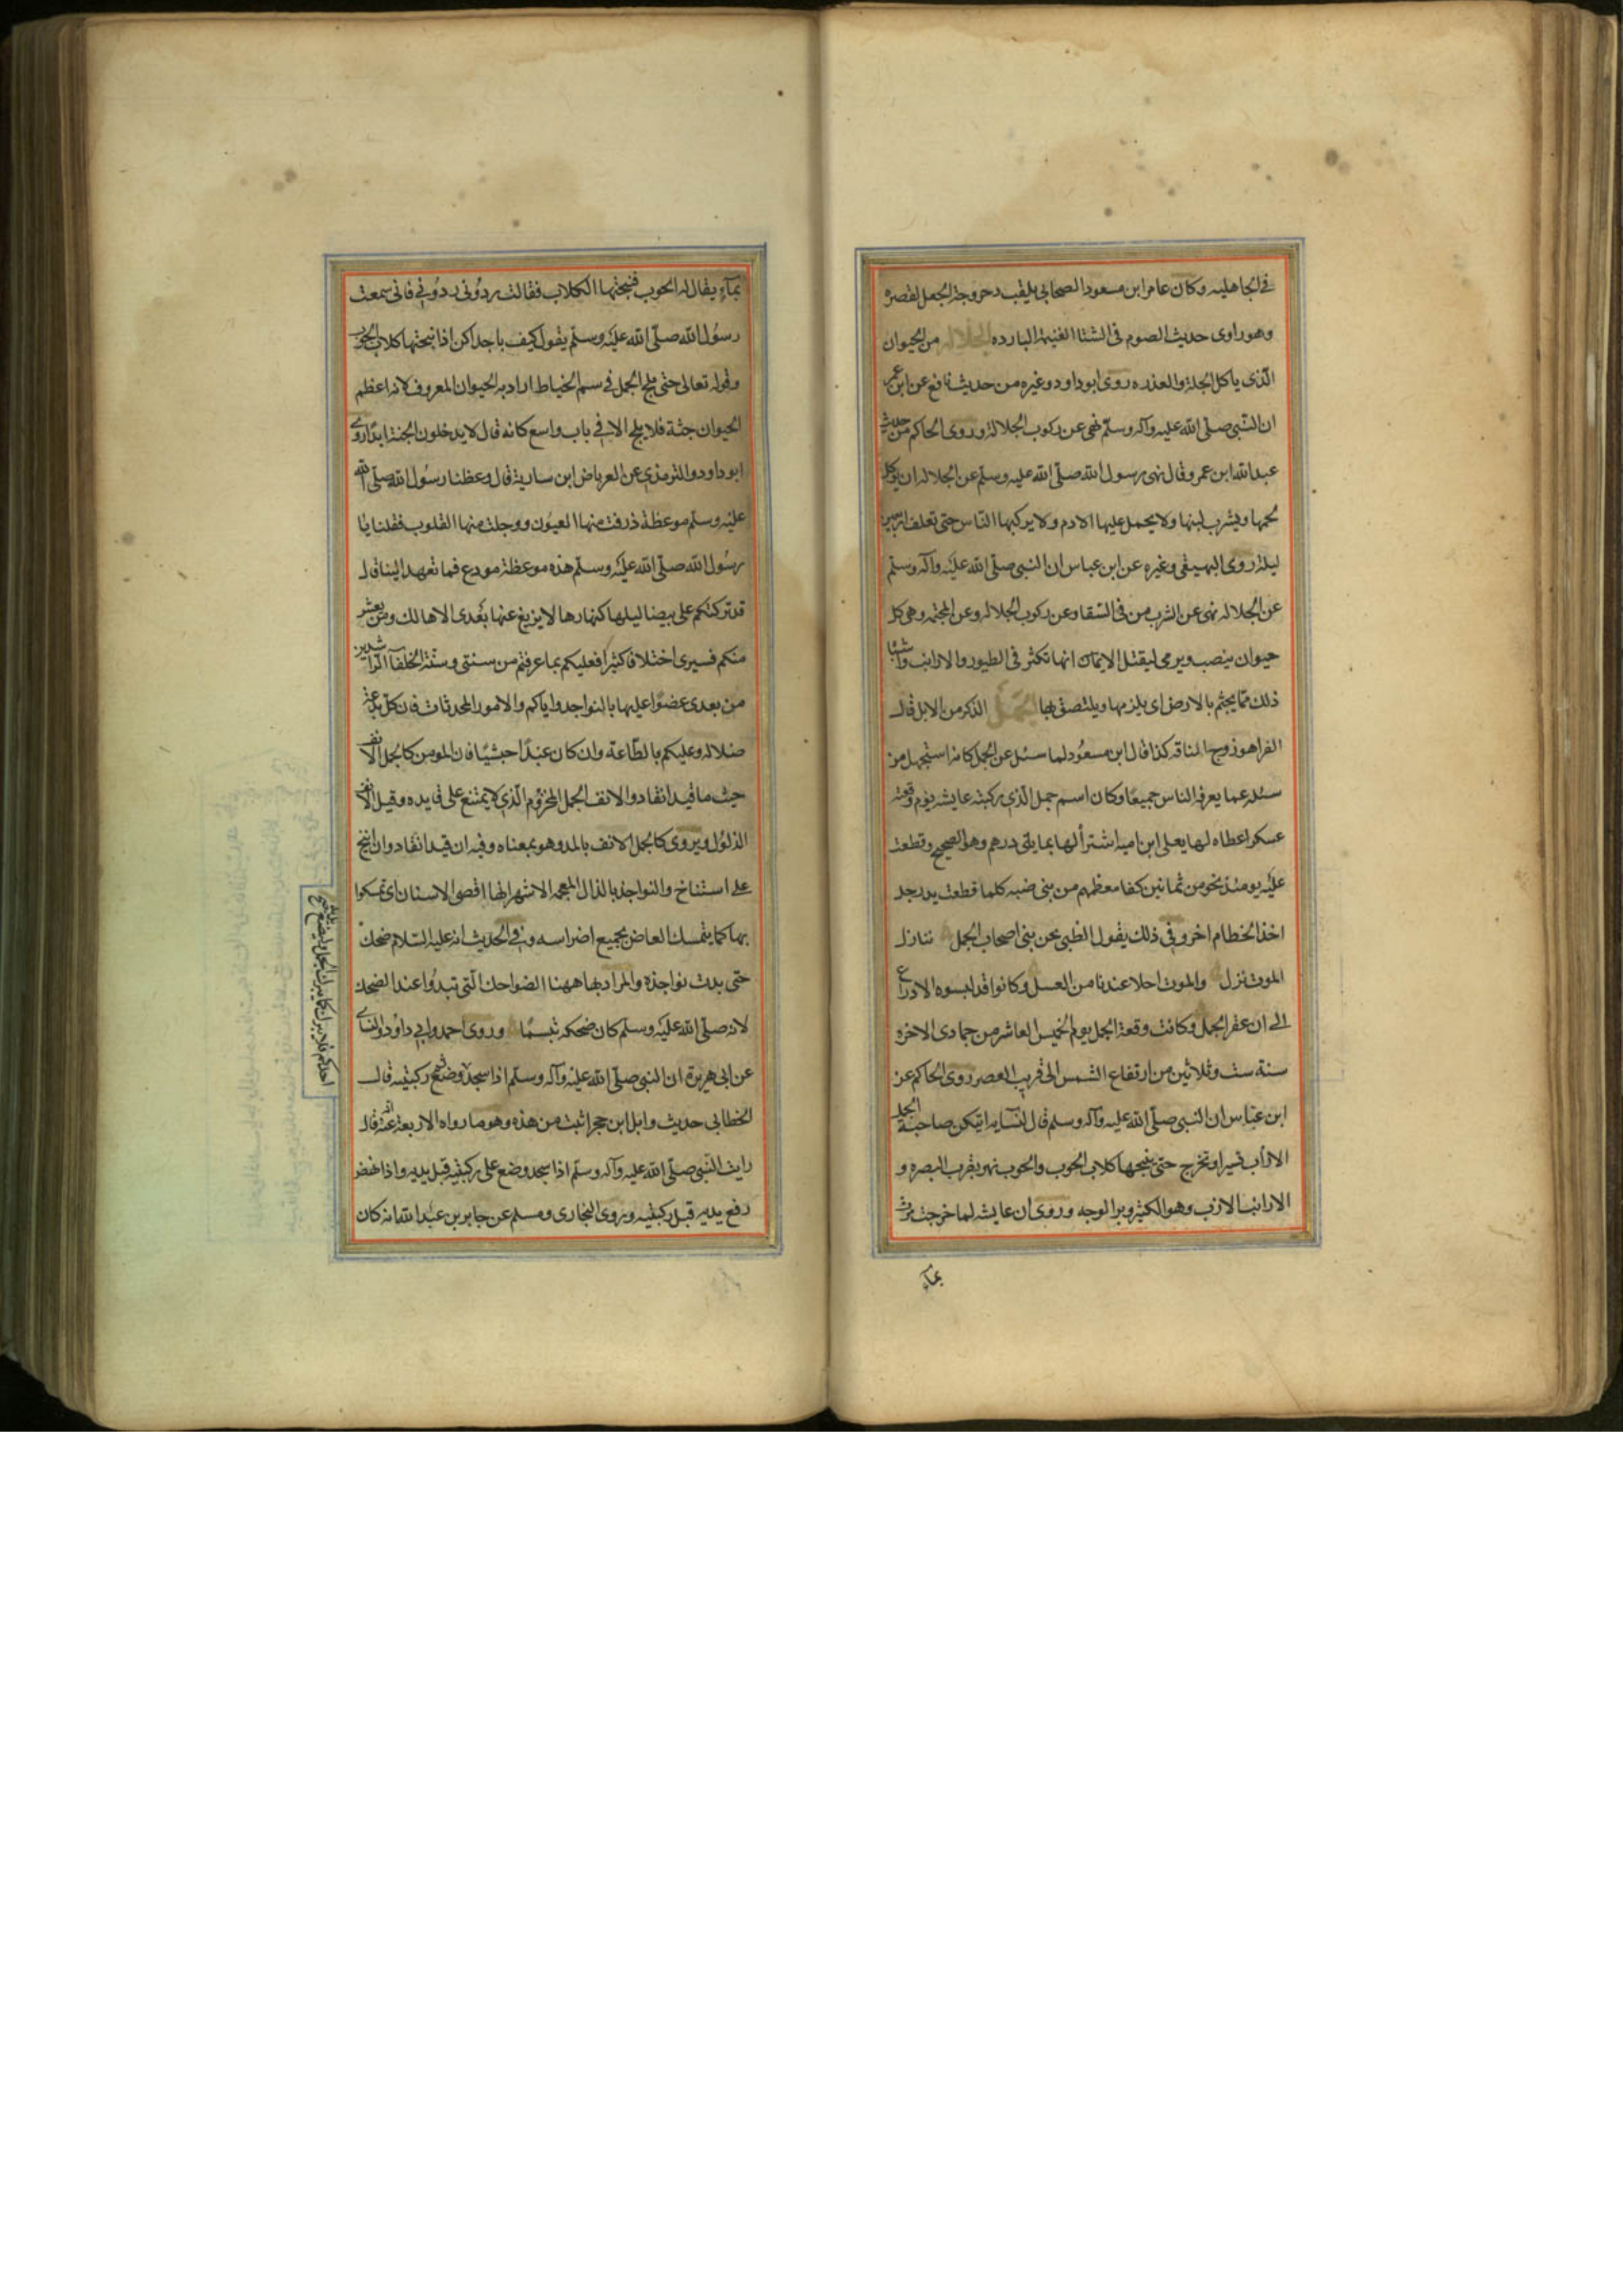 في الجاهليه وكان عامر ابن مسعود الصحابي يلقب دحروجة الجعل لقصره
وهو راوى حديث الصوم فى الشتا الغنيمة البارده الجلاله من الحيوان
الّذى ياكل الجلة والعذره روى ابو داود وغيره من حديث نافع عن ابن عمر
ان النّبى صلّى الله عليه وآله وسلّم نهى عن ركوب الجلالة وروى الحاكم من حديث
عبد الله ابن عمرو قال نهى رسول الله صلّى الله عليه وسلّم عن الجلاله ان يوكل
لحمها ويشرب لبنها ولا يحمل عليها الادم ولا يركبها النّاس حتى تعلف اربعين
ليلة روى البهيقى وغيره عن ابن عباس ان النبى صلّى الله عليه وآله وسلّم
عن الجلاله نهى عن الشرب من فى السّقا وعن ركوب الجلاله وعن المجثمه وهى كل
حيوان ينصب ويرمى ليقتل الا انها تكثر فى الطيور والارانب واشباه
ذلك ممّا يجثم بالارض اى يلزمها ويلتصق بها الجَمَل الذكر من الابل قال
الفرا هو زوج الناقه كذا قال ابن مسعود لما سئل عن الجمل كانه استجهل من
سئله عما يعرفه الناس جميعًا وكان اسم جمل الّذى ركبته عايشه يوم وقعة
عسكر اعطاه لها يعلى ابن اميه اشترا لها بمايتى درهم وهو الصحيح وقطعت
عليه يومئذ نحو من ثمانين كفا معظمهم من بنى ضبه كلما قطعت يد رجل
اخذ الخطام اخر وفى ذلك يقول الظبى نحن بنى اصحاب الجمل ننازل
الموت نزل والموت احلا عندنا من العسل وكانوا قد البسوه الادراع
الى ان عقر الجمل وكانت وقعة الجمل يوم الخميس العاشر من جمادى الاخره
سنة ست وثلاثين من ارتفاع الشمس الى قريب العصر روى الحاكم عن
ابن عبّاس ان النبى صلّى الله عليه وآله وسلم قال لنسايه ايتكن صاحبة الجمل
الادأب تسير او تخرج حتى ينبحها كلاب الحوب والحوب نهر بقرب البصره و
الازب وهو الكثير وبر الوجه وروى ان عايشه لما خرجت مرت
بمآء
بمآءٍ يقال له الحوب فنبحتها الكلاب فقالت ردّونى ردّونى فانى سمعت
رسول الله صلّى الله عليه وسلّم يقول كيف باحداكن اذا نبحتها كلاب الحوب
وقوله تعالى حتى يلج الجمل فى سم الخياط اراد به الحيوان المعروف لانه اعظم
الحيوان جثة فلا يلج الا في باب واسع كانه قال لا يدخلون الجنة ابدًا روى
ابو داود والترمذى عن العرباض ابن سارية قال وعظنا رسول الله صلّى الله
عليه وسلّم موعظة ذرفت منها العيون ووجلت منها القلوب فقلنا يا
رسول الله صلّى الله عليه وسلّم هذه موعظة مودع فما تعهد الينا قال
قد تركتكم على بيضا ليلها كنهارها لا يزيغ عنها بعدى الا هالك ومن يعش
منكم فسيرى اختلافا كثيرا فعليكم بما عرفتم من سنتى وسنّة الخلفآ الراشدين
من بعدى عضّوا عليها بالنواجد واياكم والامور المحدثات فان كلّ بدعة
ضلاله وعليكم بالطّاعه وان كان عبدًا حبشيًا فان المومن كالجمل الانف
حيث ما قيد انقاد والانف الجمل المخزوم الّذى لا يمتنع على قايده وقيل الانف
الذلول ويروى كالجمل الانف بالمد وهو بمعناه وفيه ان قيد انقاد وان انيخ
على استناخ والنواجذ بالذال المعجمه الاشهر انها اقصى الاسنان اى تمسكوا
بها كما يتمسك العاض بجميع اضراسه وفى الحديث انه عليه السّلام ضحك
حتى بدت نواجذه والمراد بها ههنا الضواحك الّتى تبدوا عند الضحك
لانه صلّى الله عليه وسلّم كان ضحكه تبسّمًا وروى احمد وابى داود والنساى
عن ابى هريرة ان النبى صلّى الله عليه وآله وسلّم اذا سجد وضع ركبتيه قال
الخطابى حديث وايل ابن حجر اثبت من هذه وهو ما رواه الاربعة عنه انه قال
رايت النّبى صلّى الله عليه وآله وسلّم اذا سجد وضع على ركبتيه قبل يديه واذا نهض
رفع يديه قبل ركبتيه وروى البخارى ومسلم عن جابر بن عبد الله انه كان
احدكم فلا يبرك كما يبرك الجمل وليضع